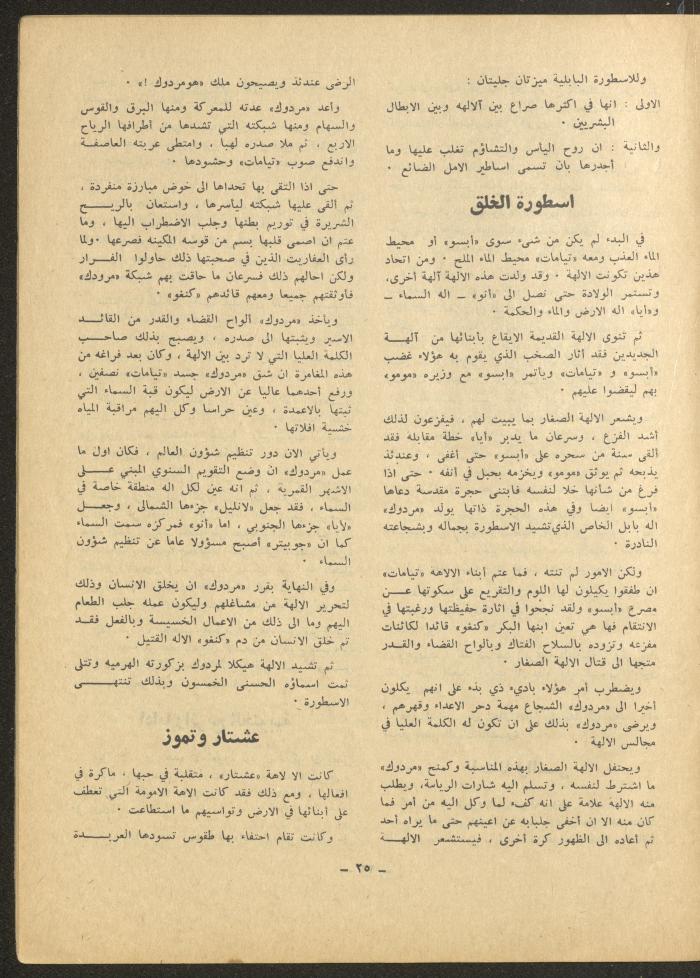 وللاسطورة البابلية ميزتان جليتان :
الاولى : انها في اكثرها صراع بين آلالهه وبين الابطال
البشريين ٠
والثانية : ان روح الياس والتشاؤم تغلب عليها وما
أجدرها بان تسمى اساطير الامل الضائع ٠
اسطورة الخلق
في البدء لم يكن من شىء سوى «أبسو» أو محيط
الماء العذب ومعه «تيامات» محيط الماء الملح ٠ ومن اتحاد
هذين تكونت الالهة ٠ وقد ولدت هذه الالهة آلهة أخرى،
وتستمر الولادة حتى نصل الى «أنو» ــ اله السماء ــ
و«أيا» اله الارض والماء والحكمة ٠
ثم تنوى الالهة القديمة الايقاع بأبنائها من آلهــة
الجديدين فقد أثار الصخب الذي يقوم به هؤلاء غضب
«أبسو» و «تيامات» ويأتمر «ابسو» مع وزيره «مومو»
بهم ليقضوا عليهم ٠
ويشعر الالهة الصغار بما يبيت لهم ، فيفزعون لذلك
أشد الفزع ، وسرعان ما يدبر «أيا» خطة مقابله فقد
ألقى سنة من سحره على «أبسو» حتى أغفى ، وعندئذ
يذبحه ثم يوثق «مومو» ويخزمه بحبل في أنفه ٠ حتى اذا
فرغ من شأنها خلا لنفسه فابتنى حجرة مقدسة دعاها
«ابسو» ايضا وفي هذه الحجرة ذاتها يولد «مردوك»
اله بابل الخاص الذي تشيد الاسطورة بجماله وبشجاعته
النادرة ٠
ولكن الامور لم تنته ، فما عتم أبناء الالاهة «تيامات»
ان طفقوا يكيلون لها اللوم والتقريع على سكوتها عــن
مصرع «أبسو» ولقد نجحوا في اثارة حفيظتها ورغبتها في
الانتقام فها هي تعين ابنها البكر «كنفو» قائدا لكائنات
مفزعه وتزوده بالسلاح الفتاك وبالواح القضاء والقــدر
متجها الى قتال الالهة الصغار ٠
ويضطرب أمر هؤلاء باديء ذي بدء على انهم يكلون
أخيرا الى «مردوك» الشجاع مهمة دحر الاعداء وقهرهم ،
ويرضى «مردوك» بذلك على ان تكون له الكلمة العليا في
مجالس الالهة ٠
ويحتفل الالهة الصغار بهذه المناسبة وكمنح «مردوك»
ما اشترط لنفسه ، وتسلم اليه شارات الرياسة، ويطلب
منه الالهة علامة على انه كفء لما وكل اليه من أمر فما
كان منه الا ان أخفى جلبابه عن اعينهم حتى ما يراه أحد
ثم أعاده الى الظهور كرة أخرى ، فيستشعر الالهــة
الرضى عندئذ ويصيحون ملك «هومردوك !» ٠
وأعد «مردوك» عدته للمعركة ومنها البرق والقوس
والسهام ومنها شبكته التي تشدها من أطرافها الرياح
الاربع ، ثم ملا صدره لهبا ، وامتطى عربته العاصفــة
واندفع صوب «تيامات» وحشودها ٠
حتى اذا التقى بها تحداها الى خوض مبارزة منفردة ،
ثم ألقى عليها شبكته لياسرها ، واستعان بالريــح
الشريرة في توريم بطنها وجلب الاضطراب اليها ، وما
عتم ان اصمى قلبها بسم من قوسه المكينه فصرعها ٠ولما
رأى العفاريت الذين في صحبتها ذلك حاولوا الفــرار
ولكن احالهم ذلك فسرعان ما حاقت بهم شبكة «مرودك»
فأوثقتهم جميعا ومعهم قائدهم «كنفو» ٠
ويأخذ «مردوك» ألواح القضاء والقدر من القائــد
الاسير ويثبتها الى صدره ، ويصبح بذلك صاحــب
الكلمة العليا التي لا ترد بين الالهة ، وكان بعد فراغه من
هذه المغامرة ان شق «مردوك» جسد «تيامات» نصفين ،
ورفع أحدهما عاليا عن الارض ليكون قبة السماء التي
ثبتها بالاعمدة ، وعين حراسا وكل اليهم مراقبة المياه
خشية افلاتها ٠
ويأتي الان دور تنظيم شؤون العالم ، فكان اول ما
عمل «مردوك» ان وضع التقويم السنوي المبني علــى
الاشهر القمرية ، ثم انه عين لكل اله منطقة خاصة في
السماء ، فقد جعل «لانليل» جزءها الشمالى ، وجعــل
«لأيا» جزءها الجنوبي ، اما «أنو» فمركزه سمت السماء
كما ان «جوبيتر» أصبح مسؤولا عاما عن تنظيم شؤون
السماء ٠
وفي النهاية يقرر «مردوك» ان يخلق الانسان وذلك
لتحرير الالهة من مشاغلهم وليكون عمله جلب الطعام
اليهم وما الى ذلك من الاعمال الخسيسة وبالفعل فقــد
تم خلق الانسان من دم «كنفو» الاله القتيل ٠
ثم تشيد الالهة هيكلا لمردوك بزكورته الهرميه وتتلى
ثمت اسماؤه الحسنى الخمسون وبذلك تنتهــي
الاسطورة ٠
عشتار وتموز
كانت الا لاهة «عشتار» ، متقلبة في حبها ، ماكرة في
افعالها ، ومع ذلك فقد كانت الاهة الامومة التي تعطف
على أبنائها في الارض وتواسيهم ما استطاعت ٠
وكانت تقام احتفاء بها طقوس تسودها العربــدة
ــ ٢٥ ــ